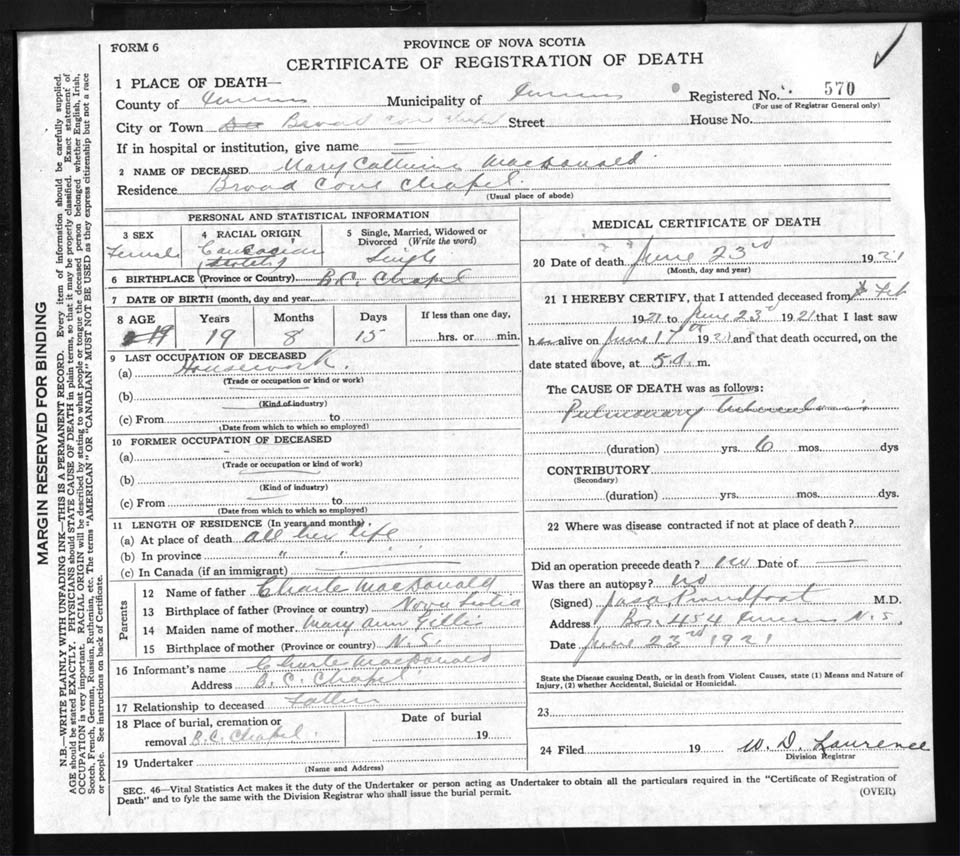 FORM 6
PROVINCE OF NOVA SCOTIA
CERTIFICATE OF REGISTRATION OF DEATH
1 PLACE OF DEATH—
County of Municipality of Registered No. 570
(For use of Registrar General only)
City or Town Broad Cove Chapel Street House No.
If in hospital or institution, give name —
2 NAME OF DECEASED Mary Catherine MacDonald
Residence Broad Cove Chapel.
(Usual place of abode)
PERSONAL AND STATISTICAL INFORMATION
3 SEX 4 RACIAL ORIGIN 5 Single, Married, Widowed or Divorced (Write the word)
Female Single
6 BIRTHPLACE (Province or Country) B.C. Chapel
7 DATE OF BIRTH (month, day and year)
8 AGE Years Months Days If less than one day,
19 19 8 15 hrs. or min.
9 LAST OCCUPATION OF DECEASED
(a) Housework.
(Trade or occupation or kind or work)
(b)
(Kind of industry)
(c) From to
(Date from which to which so employed)
10 FORMER OCCUPATION OF DECEASED
(a) -
(Trade or occupation or kind of work)
(b)
(Kind of industry)
(c) From to
(Date from which to which so employed)
11 LENGTH OF RESIDENCE (In years and months)
(a) At place of death all her life
(b) In province " " "
(c) In Canada (if an immigrant)
Parents
12 Name of father Charles MacDonald
13 Birthplace of father (Province or country) Nova Scotia
14 Maiden name of mother Mary Ann Gillis
15 Birthplace of mother (Province or country) N.S.
16 Informant's name Charles MacDonald
Address B.C. Chapel
17 Relationship to deceased Father
18 Place of burial, cremation or removal B.C. Chapel.
Date of burial
19
19 Undertaker
(Name and Address)
MEDICAL CERTIFICATE OF DEATH
20 Date of death June 23rd 1921
(Month, day and year)
21 I HEREBY CERTIFY, that I attended deceased from Feb
1921 to June 23rd 1921 that I last saw
her alive on June 17th 1921 and that death occurred, on the
date stated above, at 5 a. m.
The CAUSE OF DEATH was as follows:
Pulmonary tuberculosis
(duration) yrs. 6 mos. dys
CONTRIBUTORY
(Secondary)
(duration) yrs. mos. dys.
22 Where was disease contracted if not at place of death?
Did an operation precede death? no Date of —
Was there an autopsy? no
(Signed) Proudfoot M.D.
Address Box 454 N.S.
Date June 23rd 1921
State the Disease causing Death, or in death from Violent Causes, state (1) Means and Nature of Injury, (2) whether Accidental, Suicidal or Homicidal.
23
24 Filed 19 W. D. Lawrence
Division Registrar
SEC. 46—Vital Statistics Act makes it the duty of the Undertaker or person acting as Undertaker to obtain all the particulars required in the "Certificate of Registration of
Death" and to fyle the same with the Division Registrar who shall issue the burial permit.
(OVER)
MARGIN RESERVED FOR BINDING
N.B.—WRITE PLAINLY WITH UNFADING INK—THIS IS A PERMANENT RECORD. Every item of information should be carefully supplied.
AGE should be stated EXACTLY. PHYSICIANS should STATE CAUSE OF DEATH in plain terms, so that it may be properly classified. Exact statement of
OCCUPATION is very important. RACIAL ORIGIN will be described by stating to what people or tongue the deceased person belonged whether English, Irish,
Scotch, French, German, Russian, Ruthenian, etc. The terms "AMERICAN" OR "CANADIAN" MUST NOT BE USED as they express citizenship but not a race
or people. See instructions on back of Certificate.